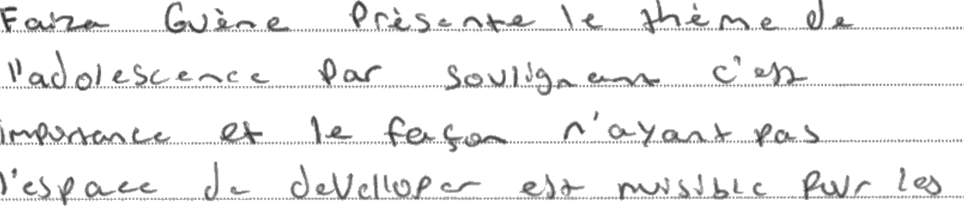 Faiza Guène Présente le thème de
l'adolescence par soulignant c'est
importance et le façon n'ayant pas
l'espace de develloper est nuisible pour les